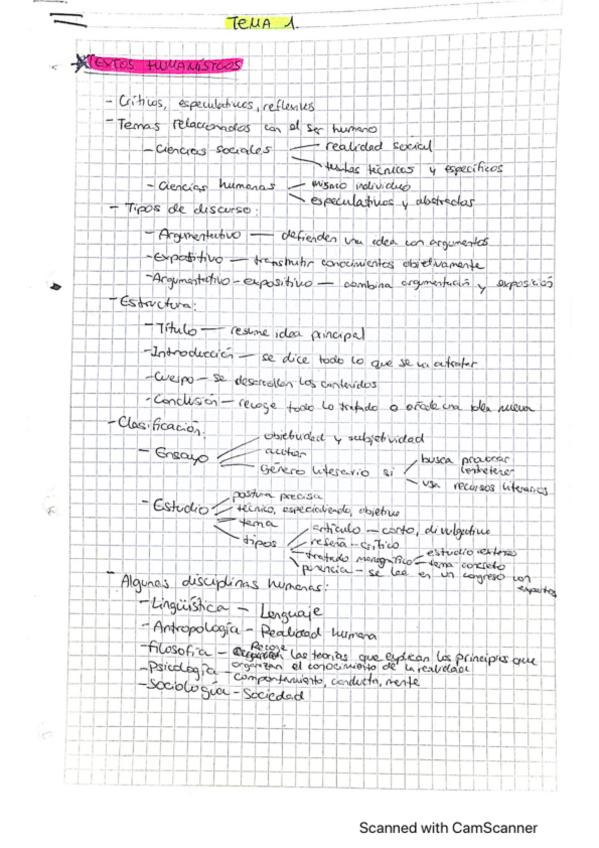 TEMA 1.
TEXTOS HUMANÍSTICOS
- Críticos, especulativos, reflexivos
- Temas relacionados con el ser humano
- Ciencias sociales — realidad social
textos técnicos y específicos
- Ciencias humanas — mismo individuo
especulativos y abstractos
- Tipos de discurso:
- Argumentativo — defienden una idea con argumentos
- Expositivo — transmitir conocimientos objetivamente
- Argumentativo - expositivo — combina argumentación y exposición
- Estructura:
- Título — resume idea principal
- Introducción — se dice todo lo que se va a tratar
- Cuerpo — se desarrollan los contenidos
- Conclusión — recoge todo lo tratado o añade una idea nueva
- Clasificación:
objetividad y subjetividad
- Ensayo
género literario si
busca provocar
entretener
usa recursos literarios
- Estudio
postura precisa
técnico, especializado, objetivo
tema
tipos
artículo — corto, divulgativo
reseña — crítico
tratado monográfico
estudio extenso
tema concreto
ponencia — se lee en un congreso con expertos
- Algunas disciplinas humanas:
- Lingüística — Lenguaje
- Antropología — Realidad humana
- Filosofía — Recoge las teorías que explican los principios que
organizan el conocimiento de la realidad
- Psicología — comportamiento, conducta, mente
- Sociología — Sociedad
Scanned with CamScanner